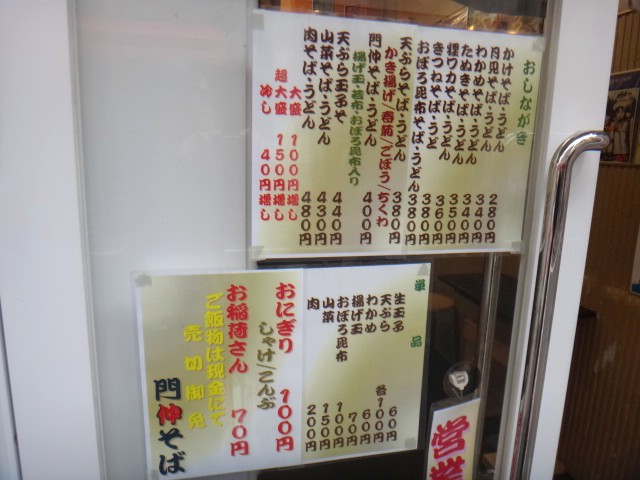 おしながき
かけそば・うどん 280円
月見そば・うどん 340円
わかめそば・うどん 340円
たぬきそば・うどん 350円
狸ワカそば・うどん 360円
きつねそば・うどん 380円
おぼろ昆布そば・うどん 380円
天ぷらそば・うどん 380円
かき揚げ/春菊/ごぼう/ちくわ
門仲そば・うどん 400円
揚げ玉・若布・おぼろ昆布入り
天ぷら玉子そば 440円
山菜そば・うどん 430円
肉そば・うどん 480円
大盛 100円増し
超大盛 150円増し
冷し 40円増し
単品
生玉子 60円
天ぷら 各100円
わかめ 60円
揚げ玉 70円
おぼろ昆布 100円
山菜 150円
肉 200円
おにぎり 100円
しゃけ/こんぶ
お稲荷さん 70円
ご飯物は現金にて
売切御免
門仲そば
営業